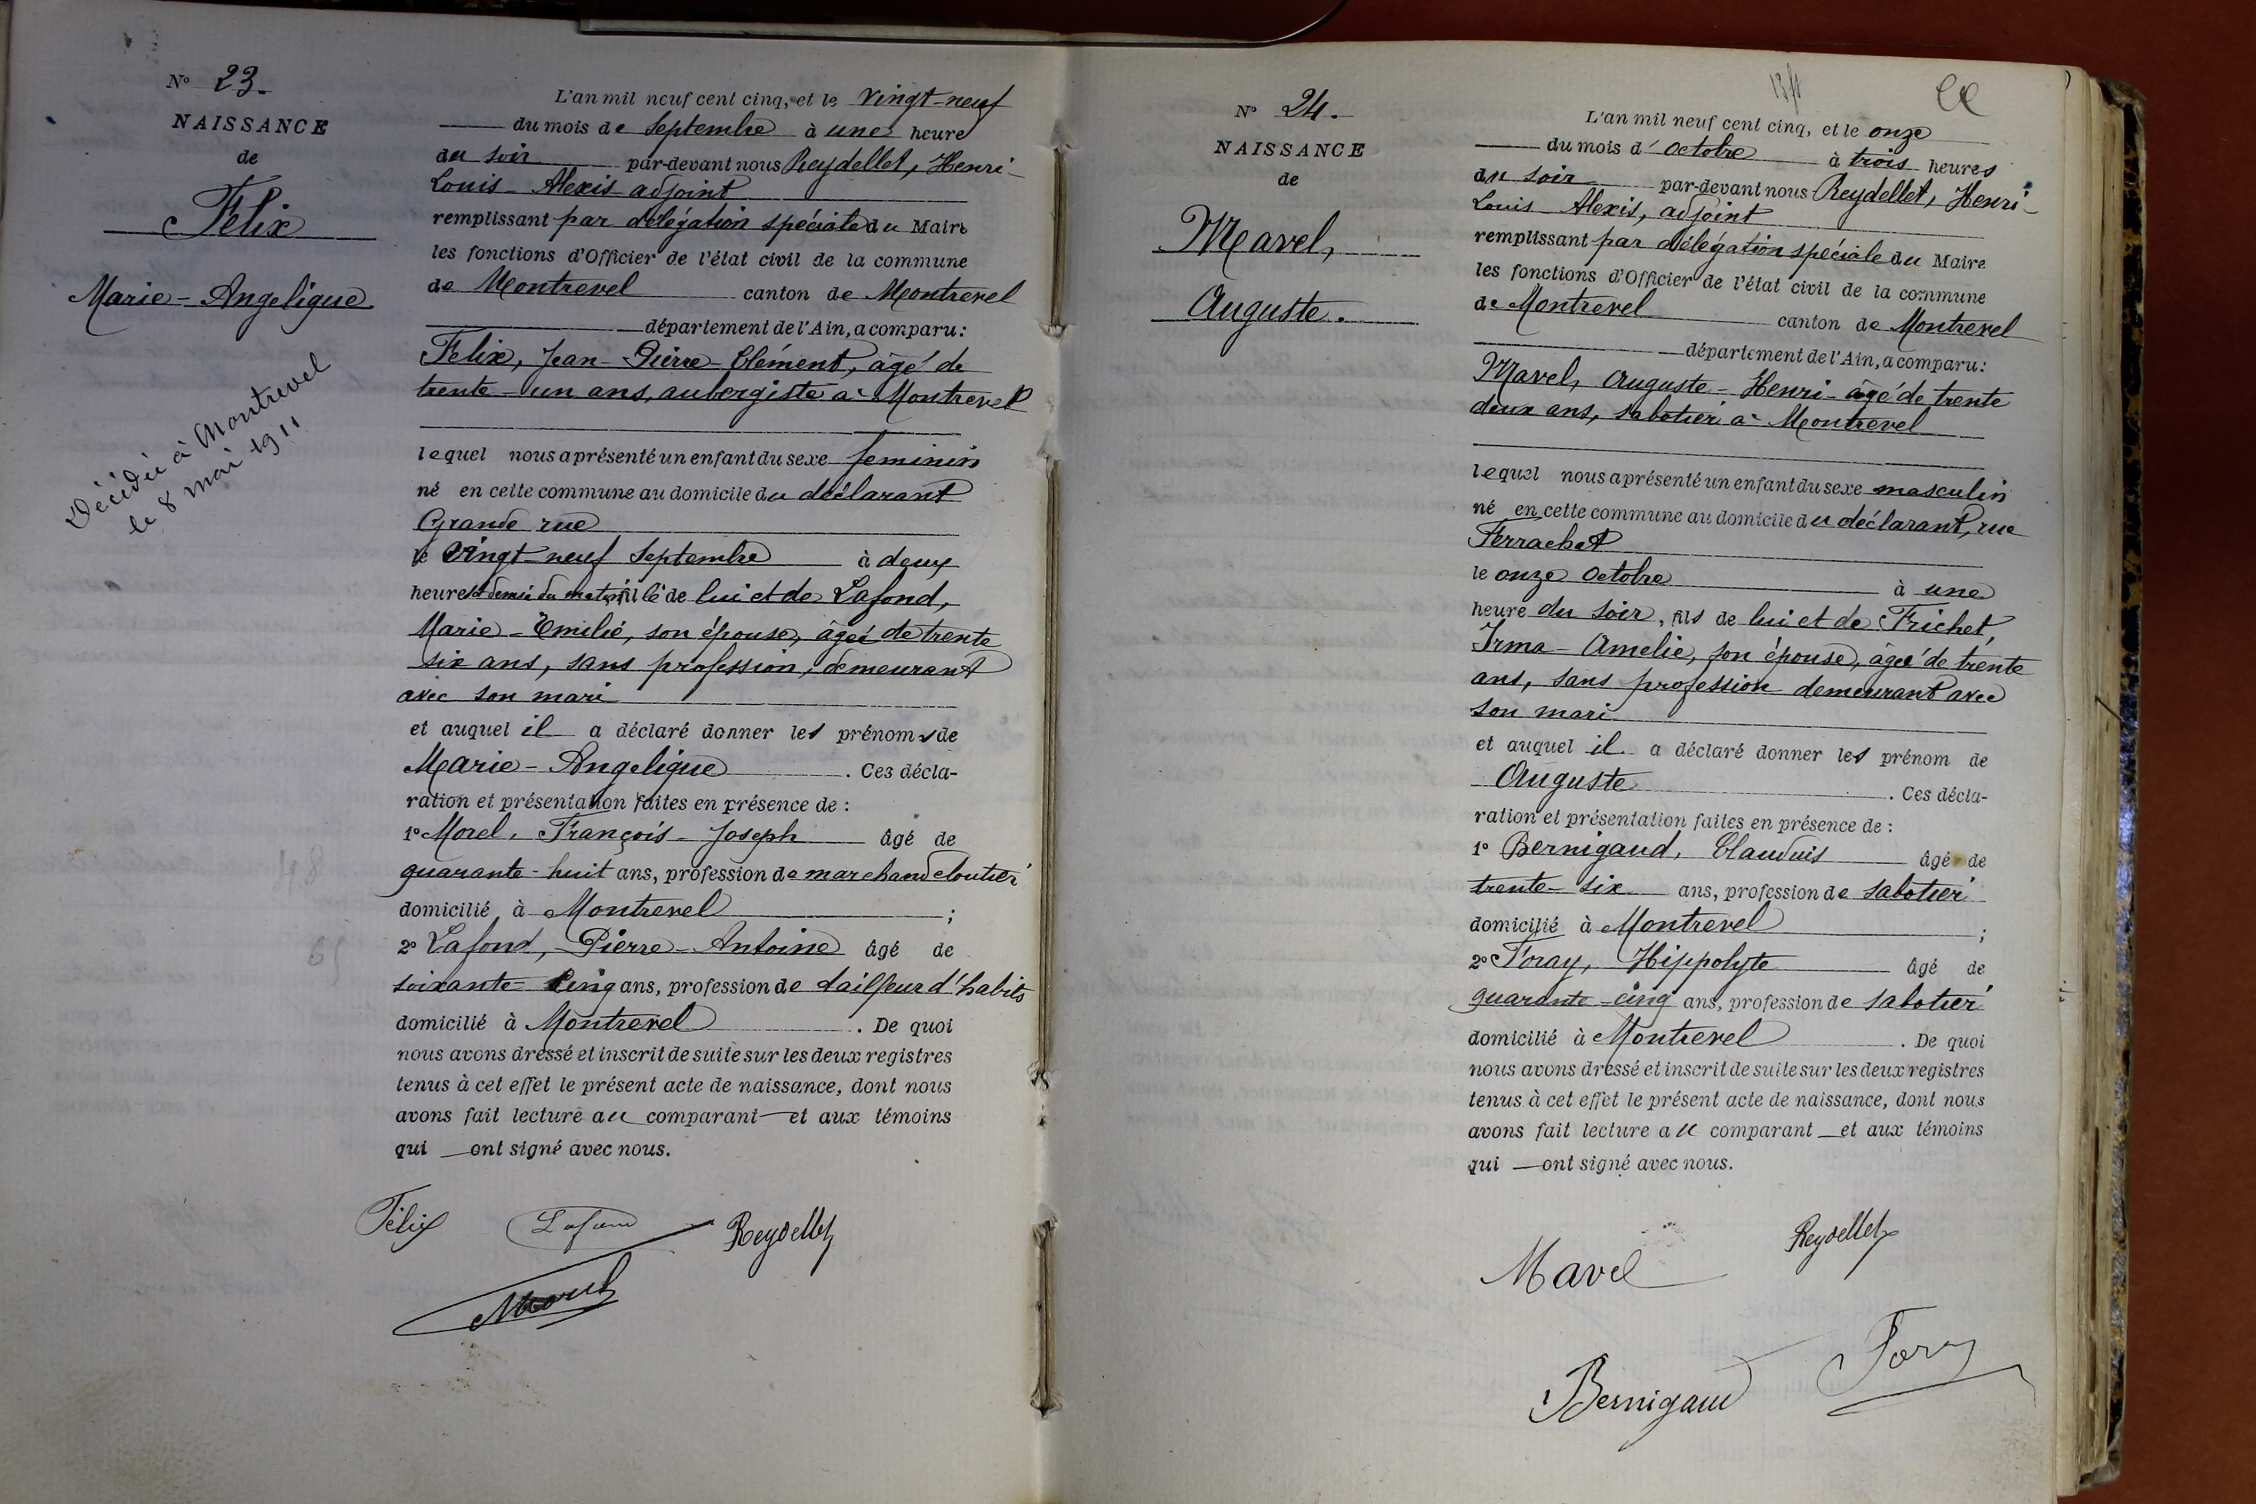 N° 23.
NAISSANCE
de
Felix
Marie-Angelique
Décédée à Montrevel
le 8 mai 1911
L'an mil neuf cent cinq, et le vingt-neuf
du mois de septembre à une heure
du soir par-devant nous Reydellet, Henri-
Louis-Alexis adjoint
remplissant par délégation spéciale du Maire
les fonctions d'Officier de l'état civil de la commune
de Montrevel canton de Montrevel
département de l'Ain, a comparu:
Felix, Jean-Pierre-Clément, âgé de
trente-un ans, aubergiste à Montrevel
lequel nous a présenté un enfant du sexe feminin
né en cette commune au domicile du déclarant
Grande rue
le vingt-neuf septembre à deux
heures et demie du matin fille de lui et de Lafond,
Marie-Emilie, son épouse, âgée de trente
six ans, sans profession, demeurant
avec son mari
et auquel il a déclaré donner les prénoms de
Marie-Angelique. Ces décla-
ration et présentation faites en présence de :
1° Morel, François-Joseph âgé de
quarante-huit ans, profession de marchand cloutier
domicilié à Montrevel ;
2° Lafond, Pierre-Antoine âgé de
soixante-cinq ans, profession de tailleur d'habits
domicilié à Montrevel. De quoi
nous avons dressé et inscrit de suite sur les deux registres
tenus à cet effet le présent acte de naissance, dont nous
avons fait lecture au comparant et aux témoins
qui ont signé avec nous.
Félix Lafond Reydellet
Morel
N° 24.
NAISSANCE
de
Mavel,
Auguste.
L'an mil neuf cent cinq, et le onze
du mois d'octobre à trois heures
du soir par-devant nous Reydellet, Henri-
Louis Alexis, adjoint
remplissant par délégation spéciale du Maire
les fonctions d'Officier de l'état civil de la commune
de Montrevel canton de Montrevel
département de l'Ain, a comparu:
Mavel, Auguste-Henri-âgé de trente
deux ans, sabotier à Montrevel
lequel nous a présenté un enfant du sexe masculin
né en cette commune au domicile du déclarant, rue
Ferrachat
le onze octobre à une
heure du soir, fils de lui et de Frichet,
Irma-Amelie, son épouse, âgée de trente
ans, sans profession demeurant avec
son mari
et auquel il a déclaré donner les prénom de
Auguste. Ces décla-
ration et présentation faites en présence de :
1° Bernigaud, Claudius âgé de
trente-six ans, profession de sabotier
domicilié à Montrevel ;
2° Foray, Hippolyte âgé de
quarante-cinq ans, profession de sabotier
domicilié à Montrevel. De quoi
nous avons dressé et inscrit de suite sur les deux registres
tenus à cet effet le présent acte de naissance, dont nous
avons fait lecture au comparant et aux témoins
qui ont signé avec nous.
Mavel Reydellet
Bernigaud Foray